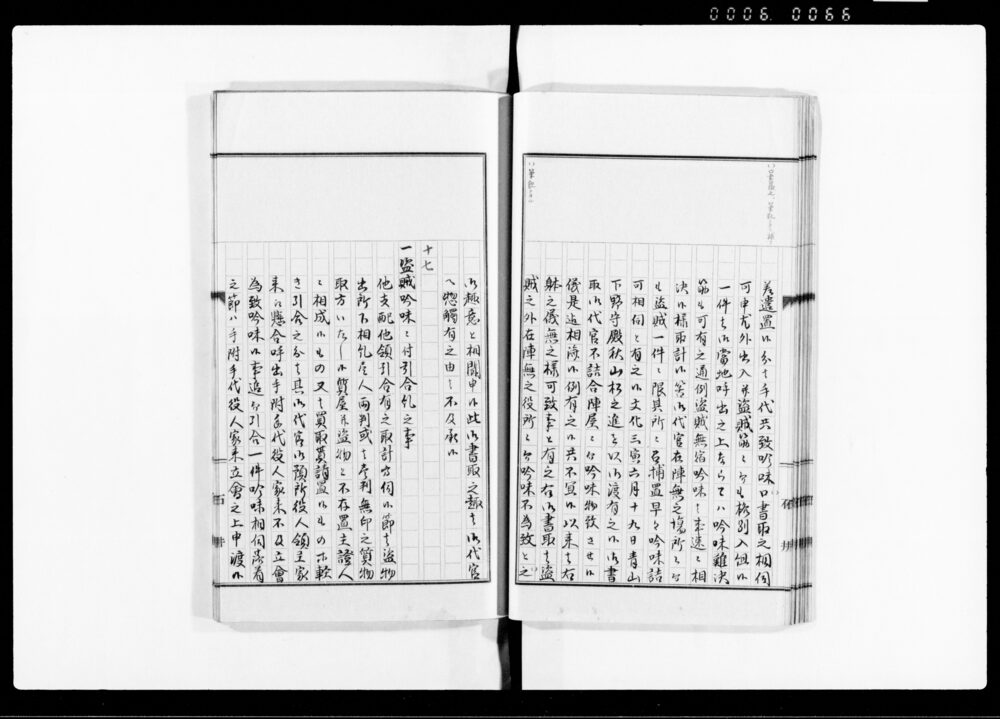 0006 0066
差遣置候分ハ手代共致吟味口書取之相伺
可申尤外出入并盗賊筋ニ而も格別入組候
一件者御當地呼出之上ならてハ吟味難決
筋も可有之通例盗賊無宿吟味之事速ニ相
決候様取計候筈御代官在陣無之場所ニ而
も盗賊一件ニ限其所ニ召捕置早々吟味詰
可相伺と有之候文化三寅六月十九日青山
下野守殿秋山松之進を以御渡有之候御書
取御代官不詰合陣屋ニ而吟味物致させ候
儀是迄相済候例有之候共不宜候以来者右
躰之儀無之様可致事と有之右御書取者盗
賊之外在陣無之役所ニ而吟味不為致との
御趣意と相聞申候此御書取之趣者御代官
へ惣觸有之由ニ不及承候
十七
一盗賊吟味ニ付引合糺之事
他支配他領引合有之取計方伺候節者盗物
出所不相糺壱人両判或者壱判無印之質物
取方いたし候質屋并盗物と不存置主證人
ニ相成候もの又者買取貰請置候もの等軽
き引合之分者其御代官御預所役人領主家
来江懸合呼出手附手代役人家来不及立會
為致吟味候事追而引合一件吟味相伺落着
之節ハ手附手代役人家来立會之上申渡候